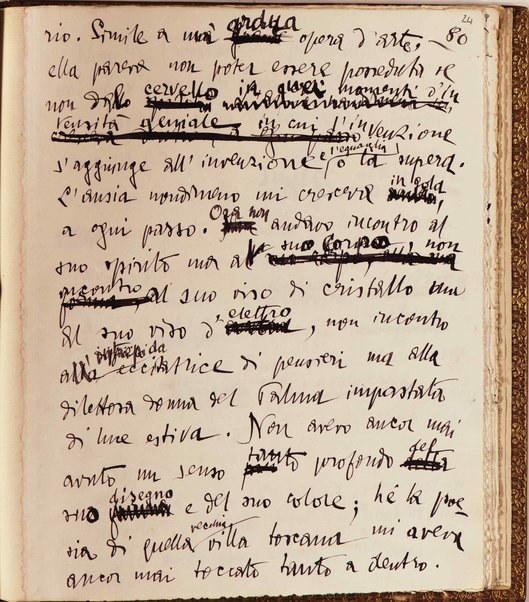 24
rio. Simile a una ardua opera d'arte, — 80
ella pareva non poter essere posseduta se
non dallo cervello in quei momenti d'in
tensità geniale in cui l'invenzione
s'aggiunge all'invenzione e l'eguaglia o la supera.
L'ansia nondimeno mi cresceva in gola
a ogni passo. Ora non andavo incontro al
suo spirito ma al suo corpo, non
incontro al suo riso di cristallo ma
al suo viso d'elettro, non incontro
all'intrepida eccitatrice di pensieri ma alla
dilettosa donna del Palma impastata
di luce estiva. Non avevo ancor mai
avuto un senso tanto profondo del
suo disegno e del suo colore; né la poe=
sia di quella vecchia villa toscana mi aveva
ancor mai toccato tanto a dentro.